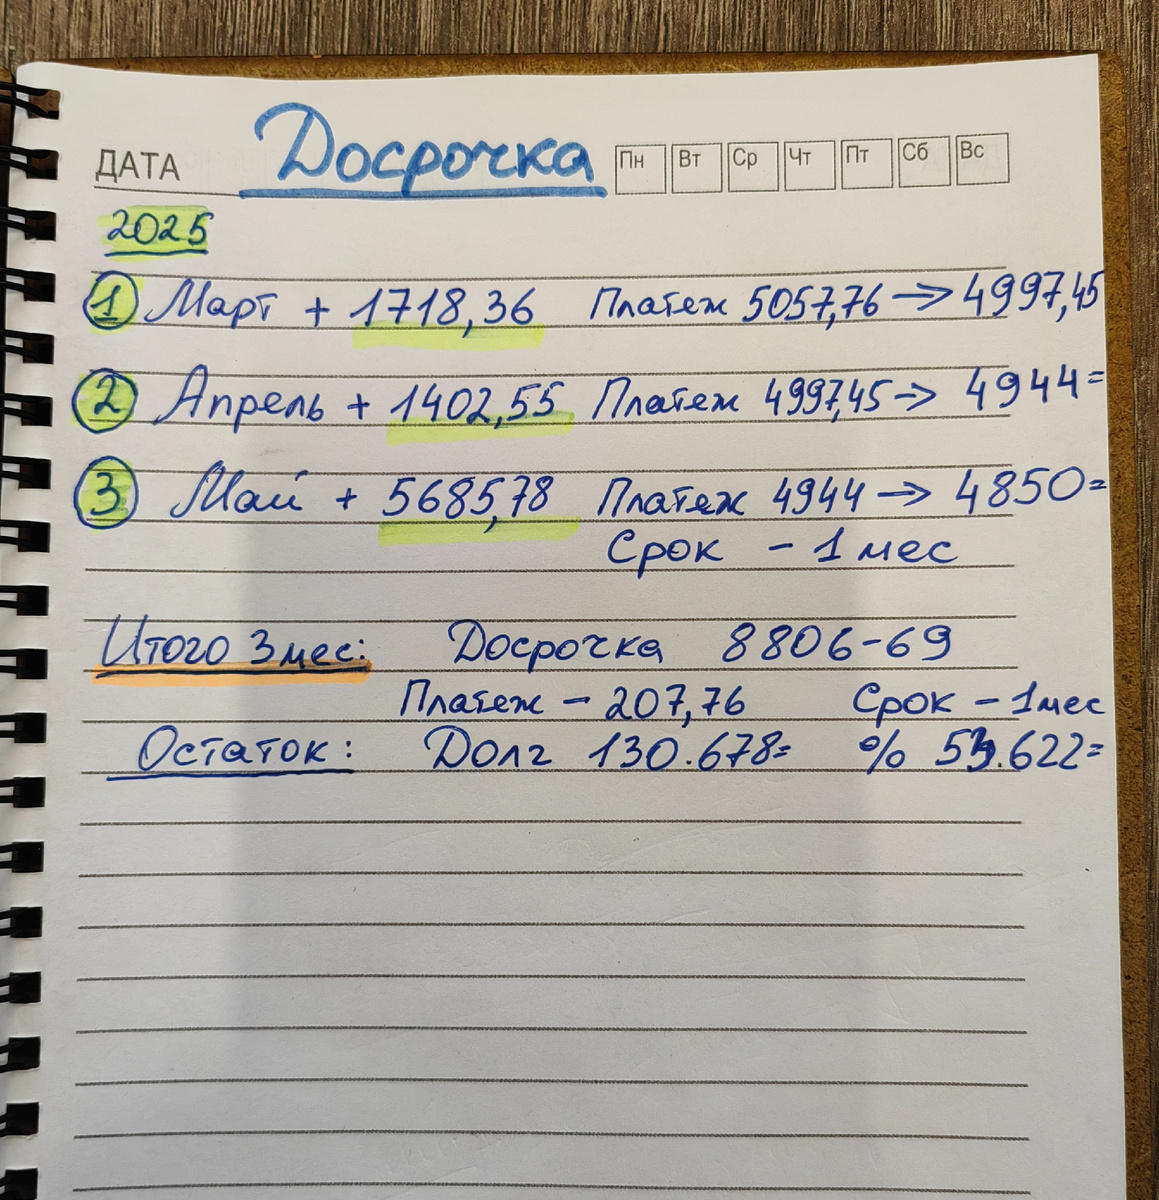 ДАТА Досрочка Пн Вт Ср Чт Пт Сб Вс
2025
1 Март + 1718,36 Платеж 5057,76 → 4997,45
2 Апрель + 1402,55 Платеж 4997,45 → 4944=
3 Май + 5685,78 Платеж 4944 → 4850=
Срок - 1 мес
Итого 3 мес: Досрочка 8806-69
Платеж - 207,76 Срок - 1 мес
Остаток: Долг 130.678= %